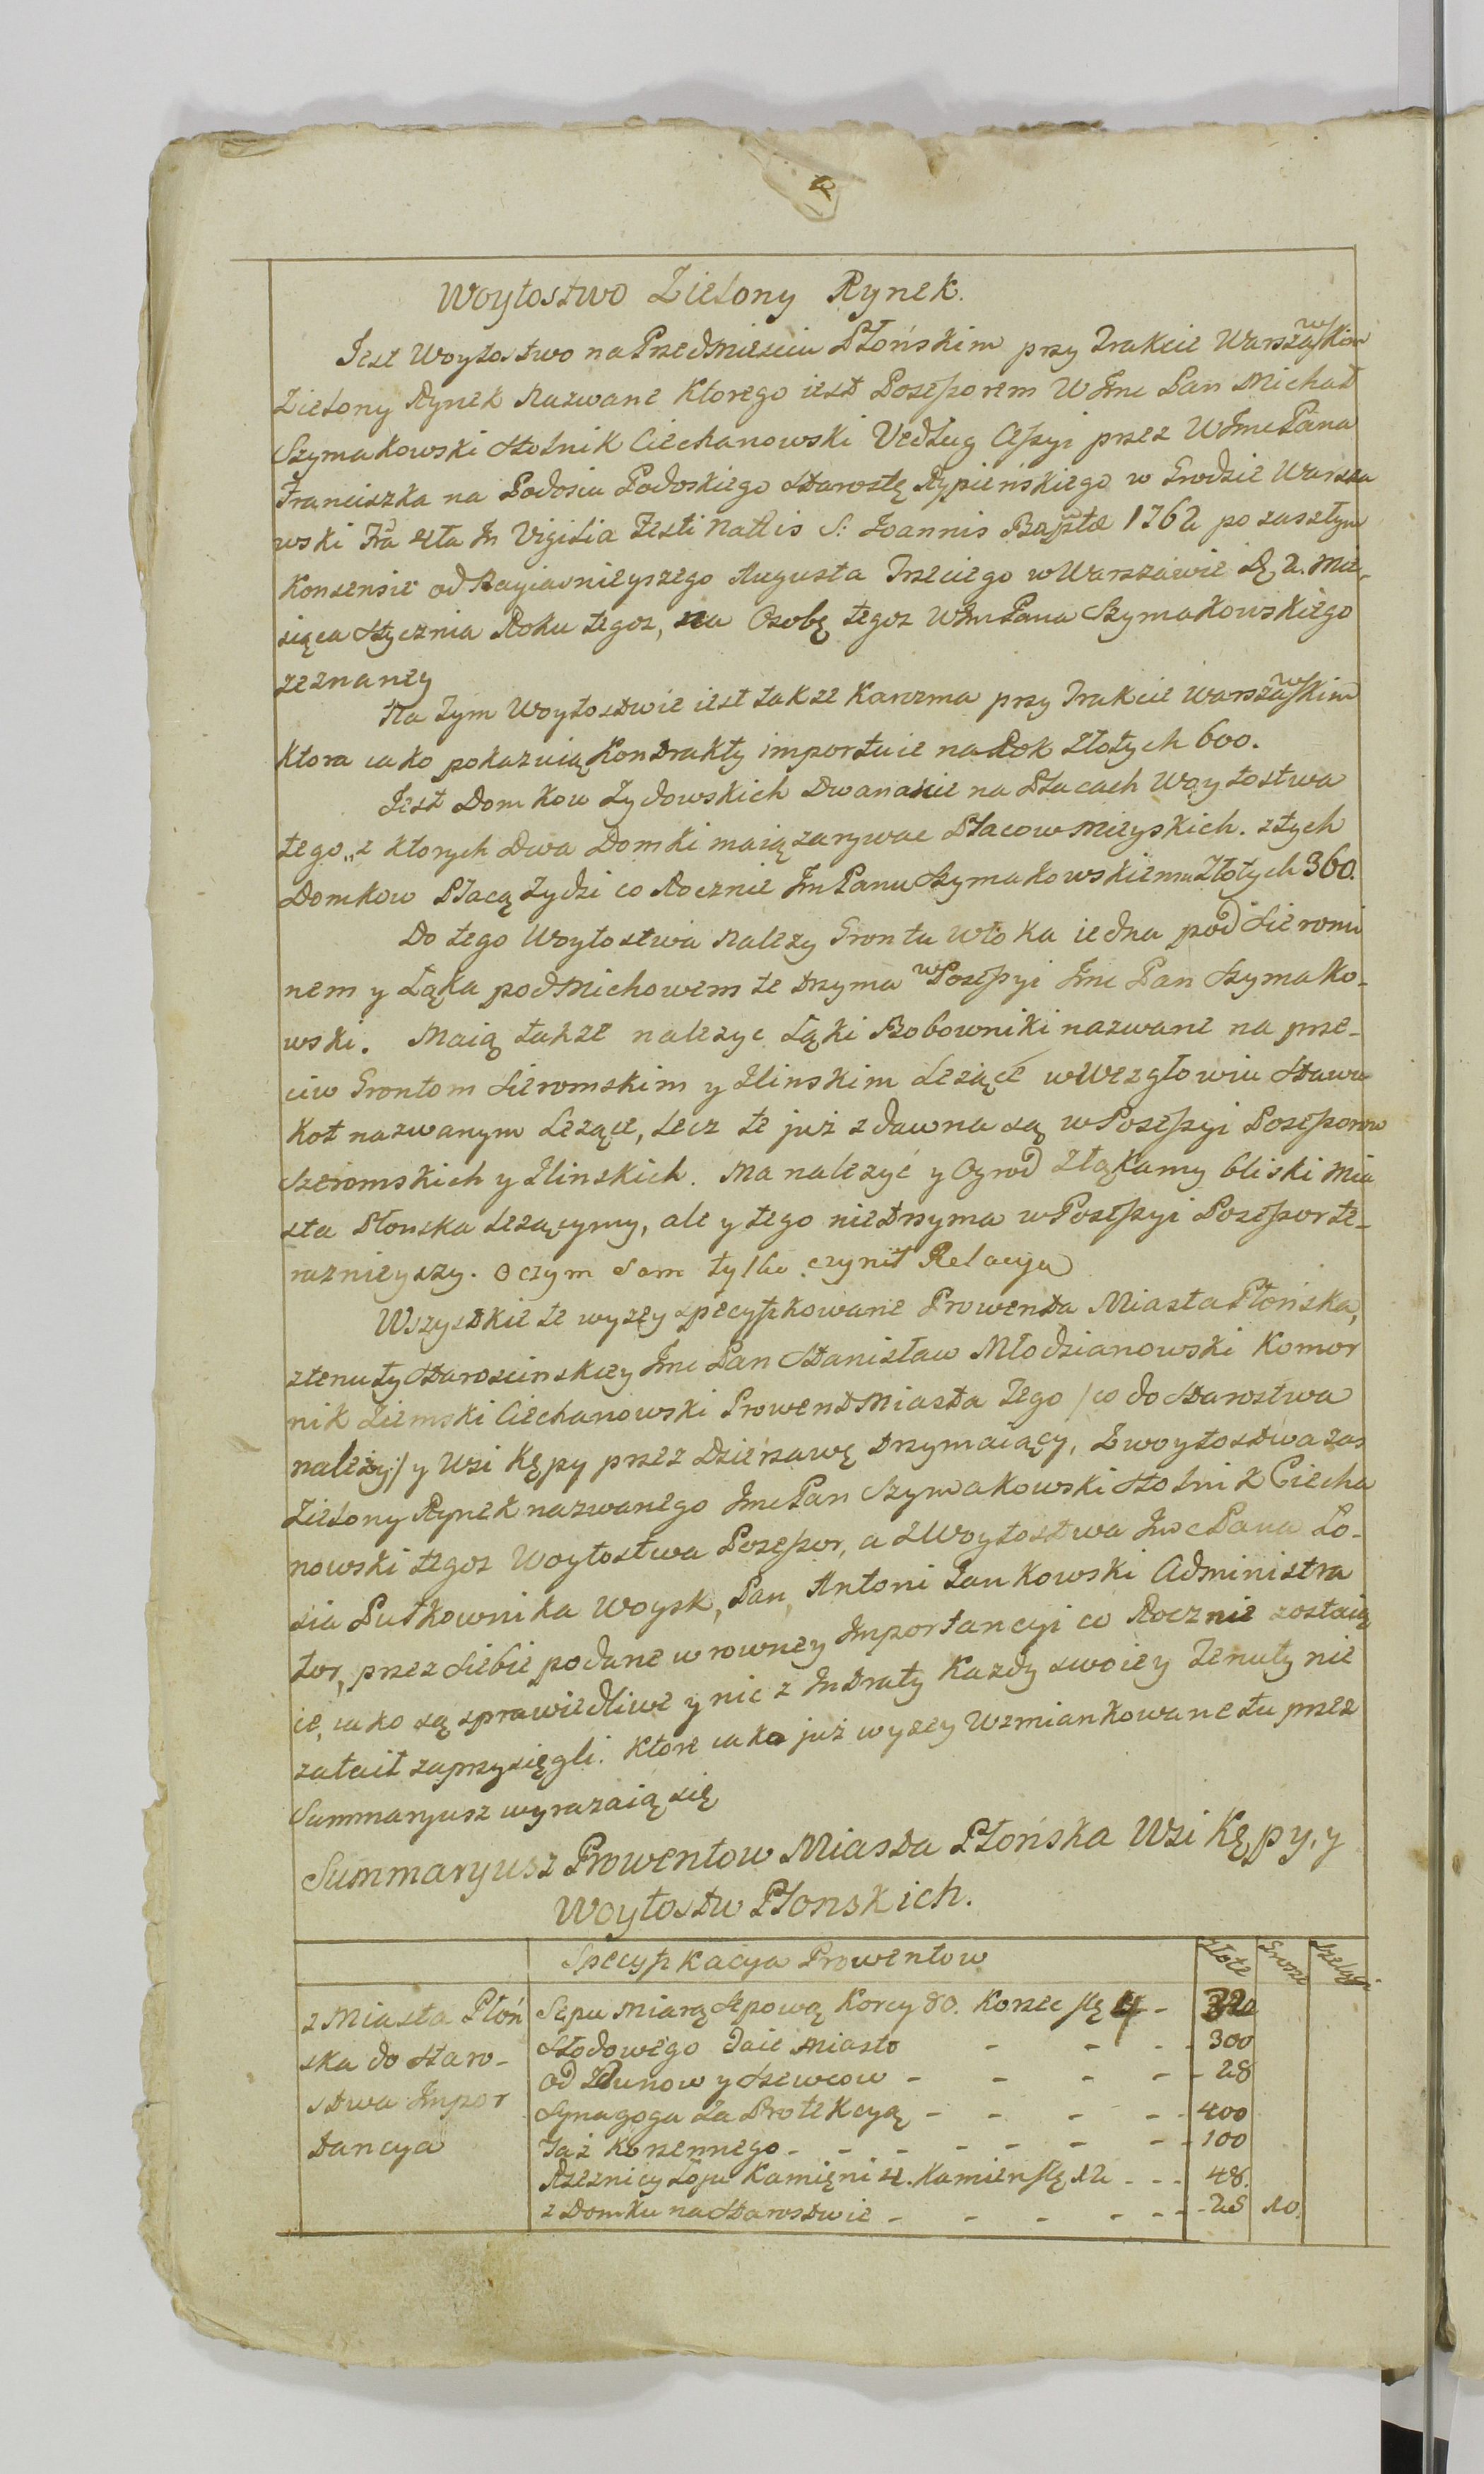 Woytostwo Zielony Rynek.
Jest Woytostwo na Przedmiesciu Płońskim przy Trakcie Warszawskim
Zielony Rynek Nazwane Ktorego iest Possessorem WJmc Pan Michał
Szymakowski Stolnik Ciechanowski Według Cessyi przez WJmcPana
Franciszka na Podosiu Podoskiego Starostę Rypieńskiego w Grodzie Warsza
wski Fra 4ta In Vigilia Festi Nattis S: Joannis Baptae 1762 po zaszłym
Konsensie od Nayiasnieyszego Augusta Trzeciego w Warszawie D. 2. Mie-
siąca Stycznia Roku tegoz, na Osobę tegoz WJmPana Szymakowskiego
zeznaney
Na tym Woytostwie iest takze Karczma przy Trakcie Warszawskim
Ktora iako pokazuią Kontrakty importuie na Rok Złotych 600.
Jest Domkow Zydowskich Dwanascie na Placach Woytostwa
tego„ z ktorych Dwa Domki maią zarywac Placow Mieyskich. z tych
Domkow Płacą Zydzi co Rocznie JmPanu Szymakowskiemu Złotych 360.
Do tego Woytostwa Nalezy Grontu Włoka iedna pod Sieromi
nem y Łąka pod Michowem te trzyma w Possessyi Jmc Pan Szymako-
wski. Maią takze nalezyc Łąki Bobowniki nazwane na prze-
ciw Grontom Sieromskim y Ilinskim Lezące w Wezgłowiu Stawu
Kot nazwanym Lezące, Lecz te już z dawna są w Possessyi Possessorow
Szeromskich y Ilinskich. Ma nalezyć y Ogrod z Łąkamy bliski Mia
sta Płonska Lezącymy, ale y tego nietrzyma w Possessyi Possessor te-
raznieyszy. o czym sam tylko czynił Relacya
Wszystkie te wyzey specyfikowane Prowenta Miasta Płońska,
z tenuty Staroscinskiey Jmc Pan Stanisław Młodzianowski Komor
nik Ziemski Ciechanowski Prowent Miasta Tego / co do Starostwa
należy / y Wsi Kępy przez Dzierzawę trzymaiący, z Woytostwa zas
Zielony Rynek nazwanego JmcPan Szymakowski Stolnik Ciecha
nowski tegoz Woytostwa Possessor, a z Woytostwa JmcPana Lo-
sia Pułkownika Woysk, Pan Antoni Jankowski Administra
tor, przez Siebie podane w rowney Importancyi co Rocznie zostaią
ce, iako są sprawiedliwe y nic z Intraty Kazdy swoiey Tenuty nie
zataił zaprzysięgli. Ktore iako już wyzey Wzmiankowane tu przez
Summaryusz wyrazaią się
Summaryusz Prowentow Miasta Płońska Wsi Kępy, y
Woytostw Płonskich.
Specyfikacya Prowentow Złote Grosze Szelągi
z Miasta Płoń
ska do Staro-
stwa Impor
tancya
Sepu Miarą Sepową Korcy 80. Korzec ffę 4 - 320
Słodowego daie Miasto - - - 300
Od Zdunow y Szewcow - - - - 28
Synagoga Za Protekcyą - - - - 400
Taż Korzennego - - - - - - - 100
Rzeznicy Łoju Kamięni 4. Kamien ffę 12 - - - 48.
z Domku na Starostwie - - - - - 28 10.